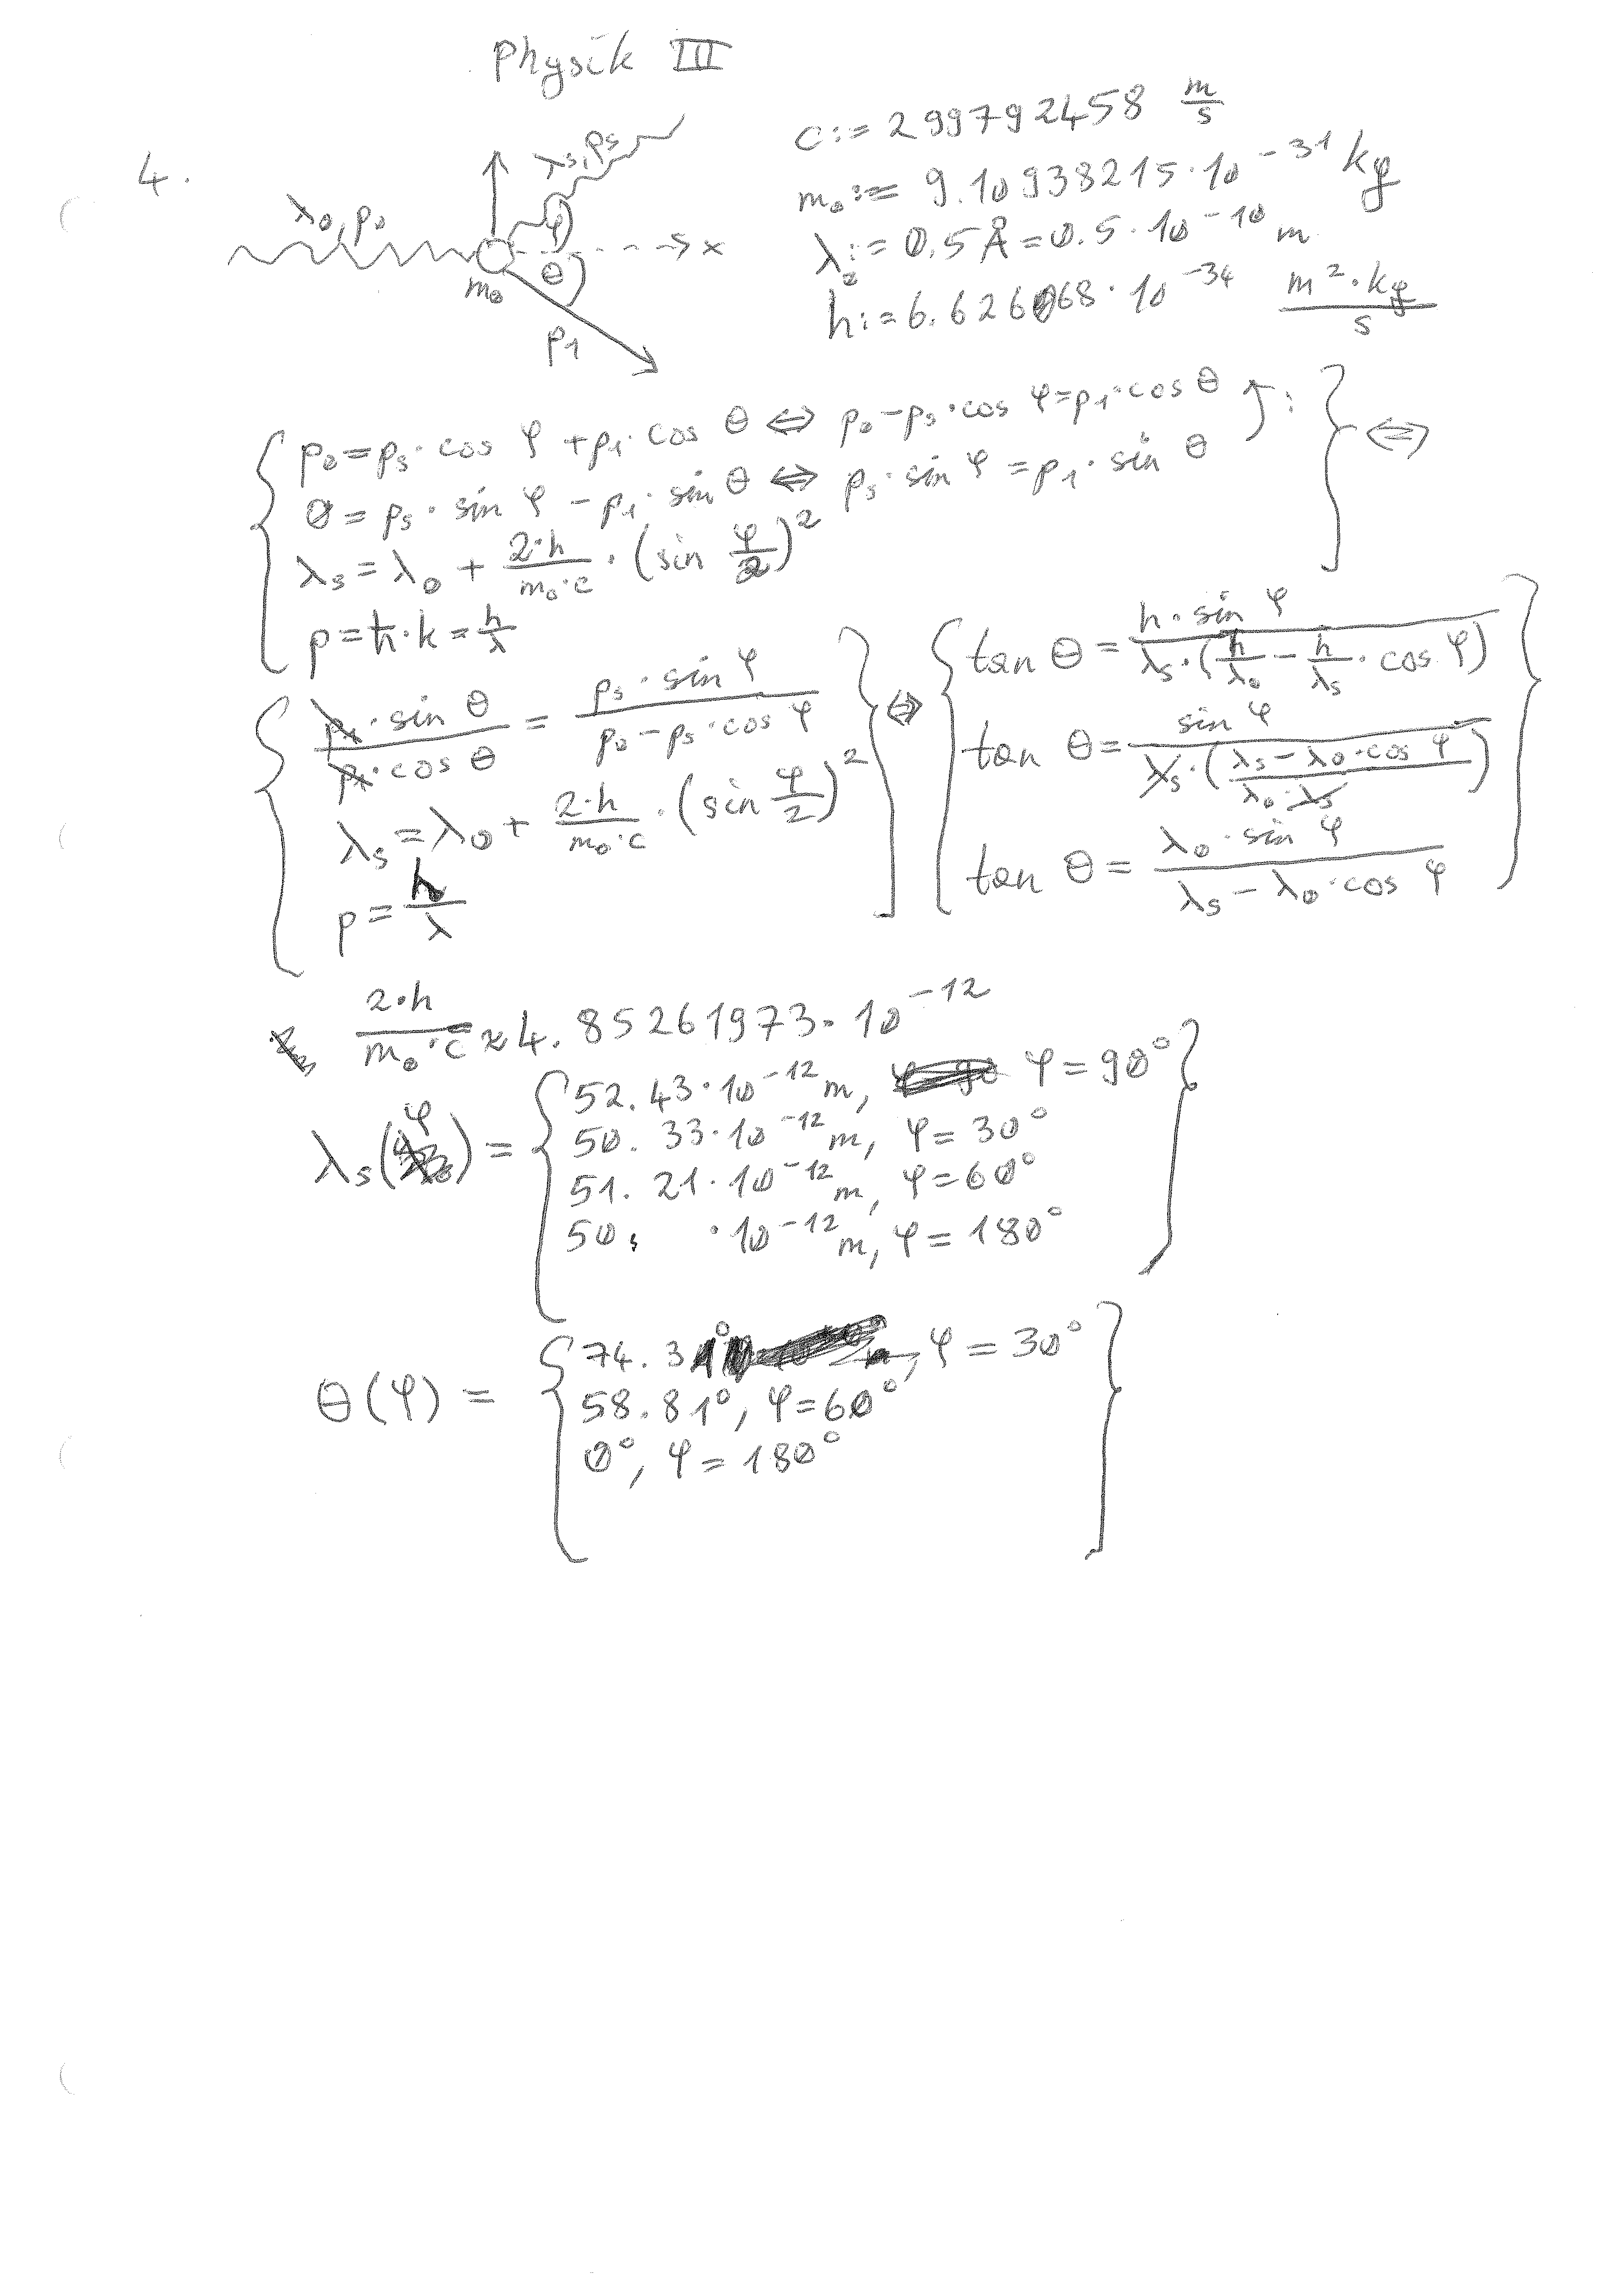 Physik III
4.
λ0, p0
λs, ps
φ
x
θ
m0
p1
c := 299792458 m/s
m0 := 9.10938215·10^-31 kg
λ0 := 0.5 Å = 0.5·10^-10 m
h := 6.626068·10^-34 m²·kg/s
{ p0 = ps·cos φ + p1·cos θ ⇔ p0 - ps·cos φ = p1·cos θ
0 = ps·sin φ - p1·sin θ ⇔ ps·sin φ = p1·sin θ
λs = λ0 + 2·h/(m0·c)·(sin φ/2)²
p = ħ·k = h/λ } ⇔
{ p1·sin θ/(p1·cos θ) = ps·sin φ/(p0 - ps·cos φ)
λs = λ0 + 2·h/(m0·c)·(sin φ/2)²
p = h/λ } ⇔
{ tan θ = h·sin φ/(λs·(h/λ0 - h/λs·cos φ))
tan θ = sin φ/(λs·((λs - λ0·cos φ)/(λ0·λs)))
tan θ = λ0·sin φ/(λs - λ0·cos φ) }
2·h/(m0·c) ≈ 4.85261973·10^-12
λs(φ) = { 52.43·10^-12 m, φ = 90°
50.33·10^-12 m, φ = 30°
51.21·10^-12 m, φ = 60°
50. ·10^-12 m, φ = 180° }
θ(φ) = { 74.31°, φ = 30°
58.81°, φ = 60°
0°, φ = 180° }